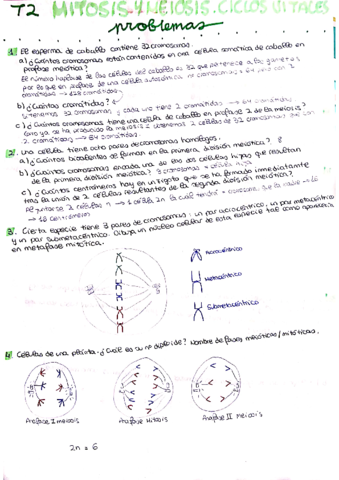 T2 MITOSIS Y MEIOSIS. CICLOS VITALES
problemas
1. El esperma de caballo contiene 32 cromosomas.
a) ¿Cuántos cromosomas están contenidos en una célula somática de caballo en
profase meiótica?
El número haploide de las células del caballo es 32 que pertenece a los gametos
por lo que en profase de una célula
b) ¿Cuántas cromátidas?
tendremos 64 cromosomas, cada uno tiene 2 cromátidas → 64
c) ¿Cuántos cromosomas tiene una célula de caballo en profase 2 de la meiosis?
como ya se ha producido la meiosis 1 tenemos 2 células de 32 cromosomas que
2 cromátidas → 64 cromátidas
2. Una célula tiene ocho pares de cromosomas homólogos.
a) ¿Cuántos bivalentes se forman en la primera división meiótica?
b) ¿Cuántos cromosomas en cada una de las dos células hijas que resultan
de la primera división meiótica? 8 cromosomas
c) ¿Cuántos centrómeros hay en un zigoto que se ha formado inmediatamente
tras la unión de 2 células resultantes de la segunda división meiótica?
2 células n → 1 célula 2n
→ 16 centrómeros
3. Cierta especie tiene 3 pares de cromosomas: un par acrocéntrico, un par metacéntrico
y un par submetacéntrico. Dibuja un núcleo celular de esta especie tal como aparecería
en metafase mitótica.
Acrocéntrico
Metacéntrico
Submetacéntrico
4. Células de una planta. ¿Cuál es su nº diploide? Nombre de fases meióticas/mitóticas.
Anafase I meiosis
Anafase Mitosis
Anafase II meiosis
2n = 6